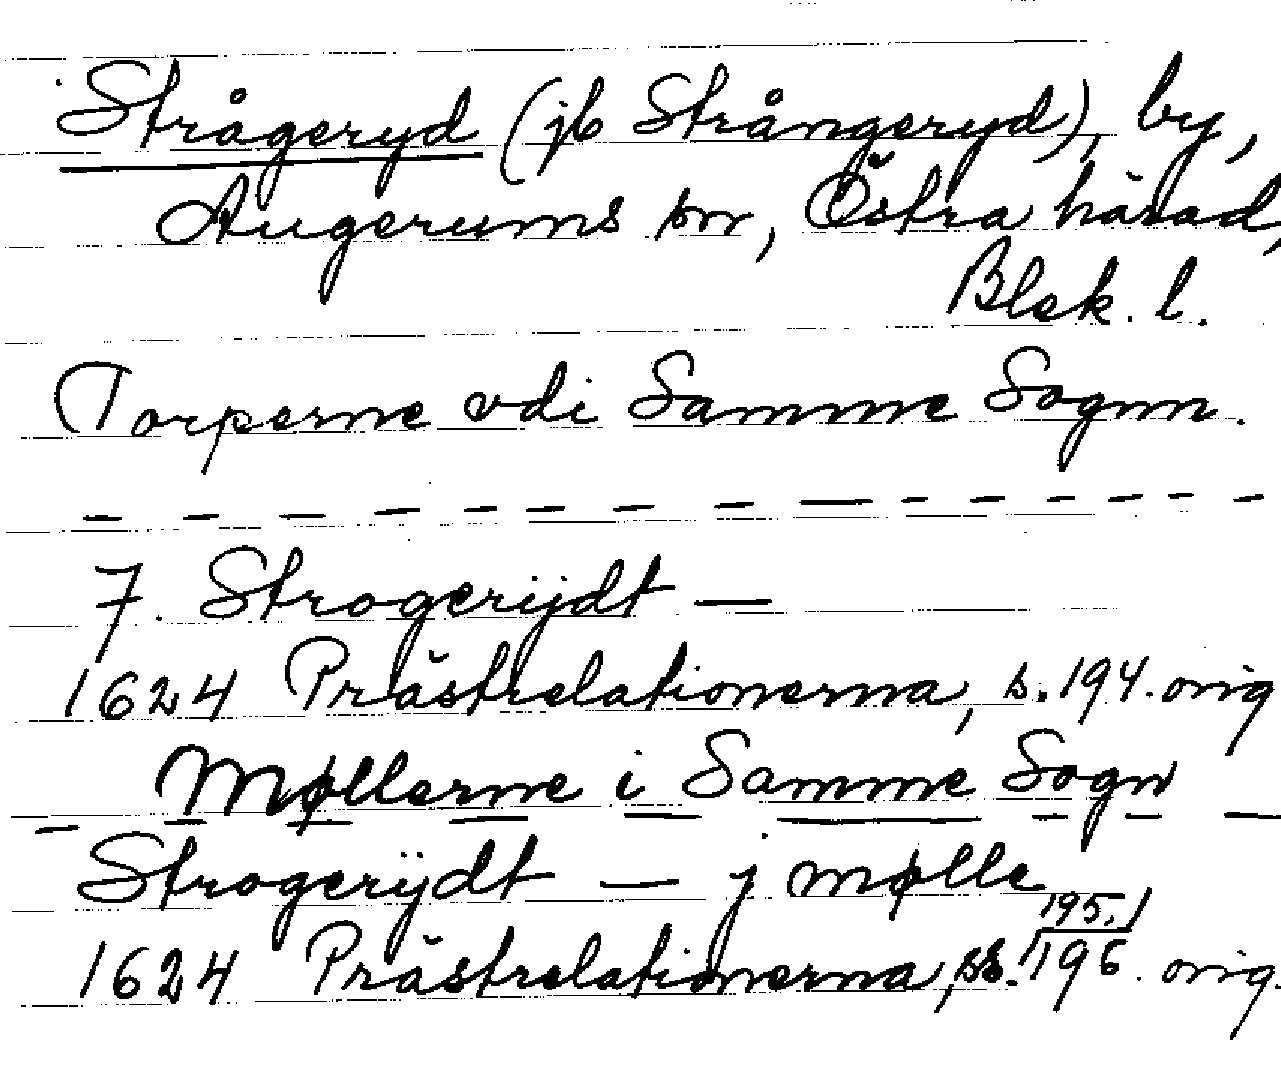 Strågeryd (jb Strångeryd), by,
Augerums sn, Östra härad,
Blek. l.
Torperne vdi Samme Sognn.
— — — — — — — — — — — — — —
7. Strogerijdt —
1624 Prästrelationerna, s. 194. orig
Møllerne i Samme Sogn
— — — — — — — — —
Strogerÿdt — j mølle
1624 Prästrelationerna, ss. 195, 196. orig.